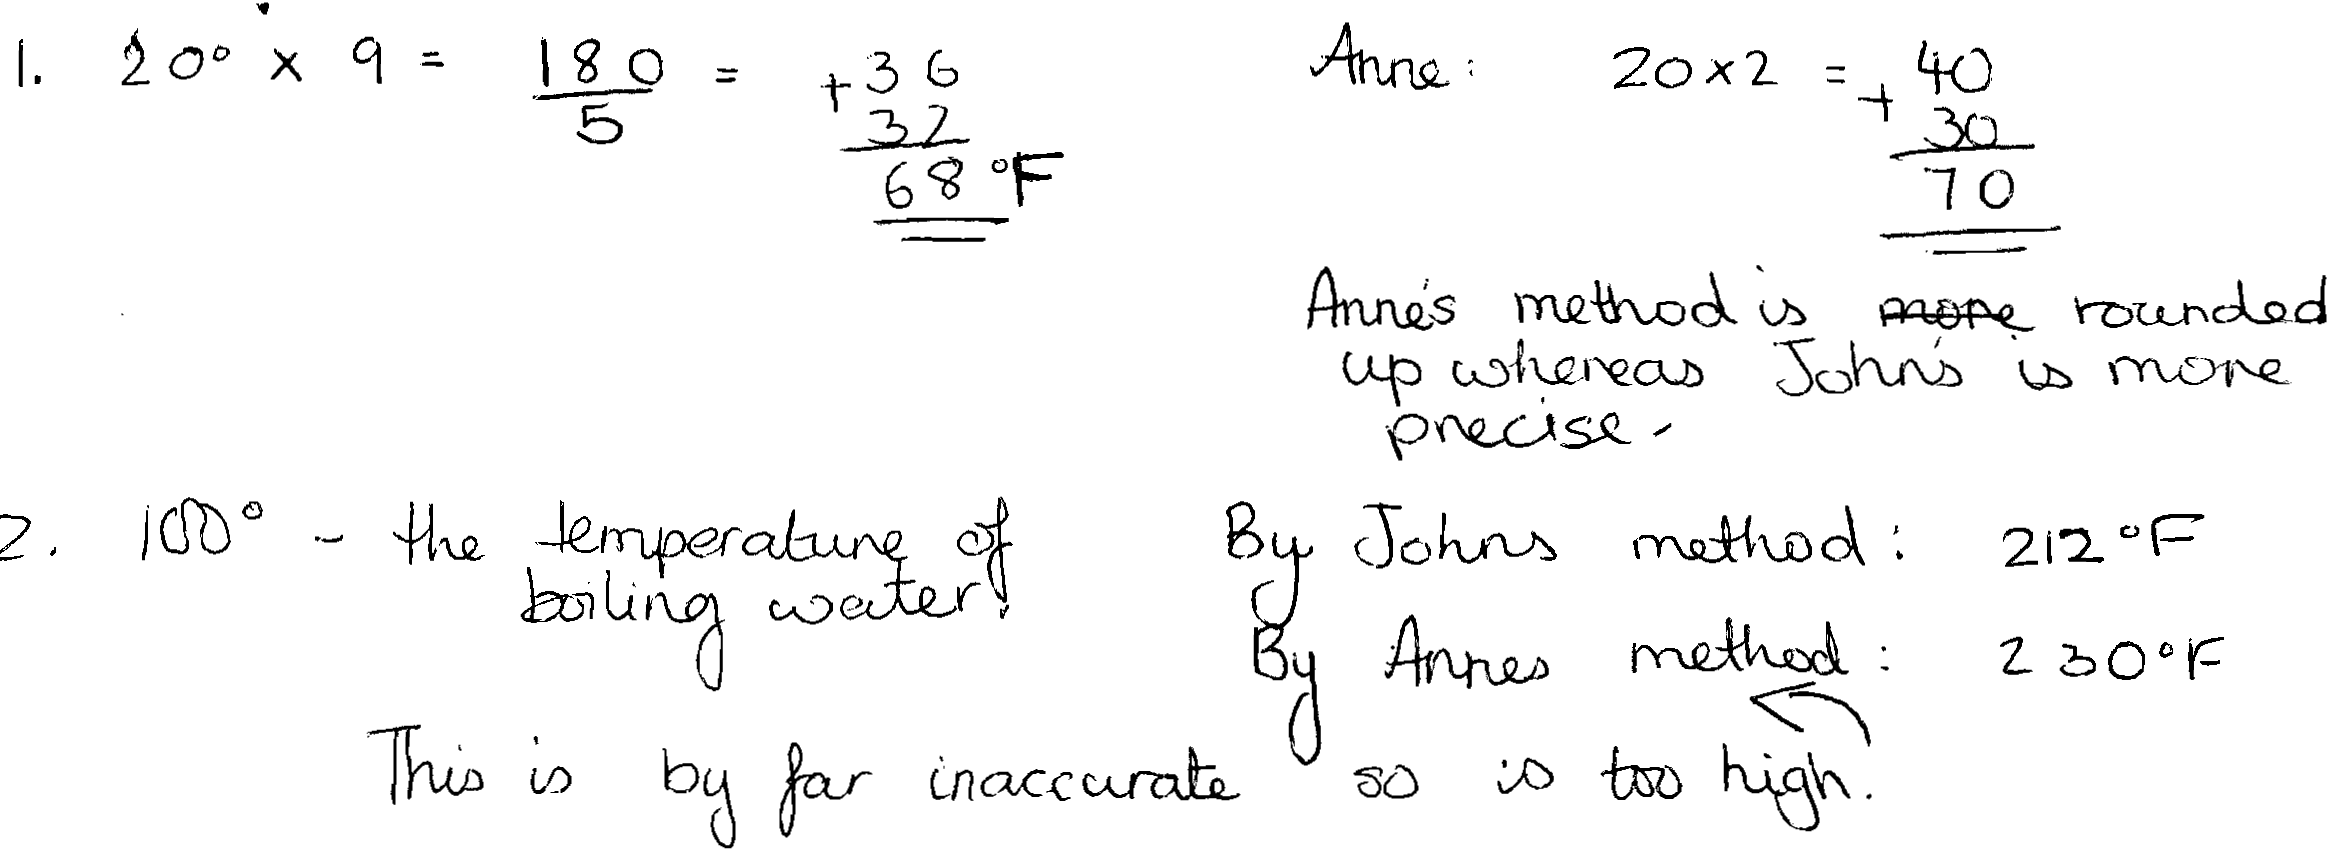 1. 20° × 9 = 180/5 = +36 Anne: 20×2 = + 40
32 30
68 °F 70
Anne's method is more rounded
up whereas John's is more
precise.
2. 100° - the temperature of By Johns method: 212 °F
boiling water!
By Annes method: 230°F
This is by far inaccurate so is too high.